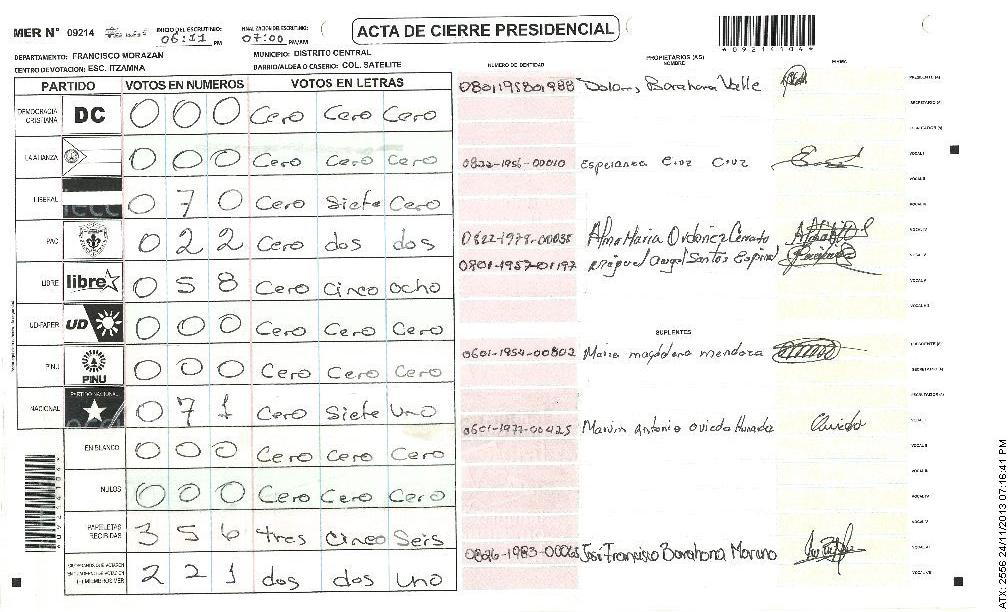 MER N° 09214 INICIO DEL ESCRUTINIO: 06:11 PM FINALIZACION DEL ESCRUTINIO: 07:00 PM/AM ACTA DE CIERRE PRESIDENCIAL
DEPARTAMENTO: FRANCISCO MORAZAN MUNICIPIO: DISTRITO CENTRAL
CENTRO DE VOTACION: ESC. ITZAMNA BARRIO/ALDEA O CASERIO: COL. SATELITE
PARTIDO VOTOS EN NUMEROS VOTOS EN LETRAS
DEMOCRACIA CRISTIANA DC 0 0 0 Cero Cero Cero
LA ALIANZA 0 0 0 Cero Cero Cero
LIBERAL 0 7 0 Cero Siete Cero
PAC 0 2 2 Cero dos dos
LIBRE libre 0 5 8 Cero Cinco ocho
UD-FAPER UD 0 0 0 Cero Cero Cero
PINU PINU 0 0 0 Cero Cero Cero
NACIONAL PARTIDO NACIONAL 0 7 1 Cero Siete Uno
EN BLANCO 0 0 0 Cero Cero Cero
NULOS 0 0 0 Cero Cero Cero
PAPELETAS RECIBIDAS 3 5 6 tres Cinco Seis
2 2 1 dos dos Uno
NUMERO DE IDENTIDAD PROPIETARIOS (AS) NOMBRE FIRMA
0801195801988 Barahona Valle PRESIDENTE (A)
SECRETARIO (A)
ESCRUTADOR (A)
0822-1956-00010 Esperanza Cruz Cruz VOCAL I
VOCAL II
VOCAL III
0822-1978-00035 Alma Maria Ordoñez Cerrato VOCAL IV
0801-1957-01197 Miguel angel Santos Espinal VOCAL V
VOCAL VI
VOCAL VII
SUPLENTES
0601-1954-00802 Maria magdalena mendoza PRESIDENTE (A)
SECRETARIO (A)
ESCRUTADOR (A)
0601-1977-00425 Marvin Antonio oviedo VOCAL I Oviedo
VOCAL II
VOCAL III
VOCAL IV
VOCAL V
0826-1983-00065 José Francisco Barahona Moreno VOCAL VI
VOCAL VII
ATX: 2556 24/11/2013 07:16:41 PM